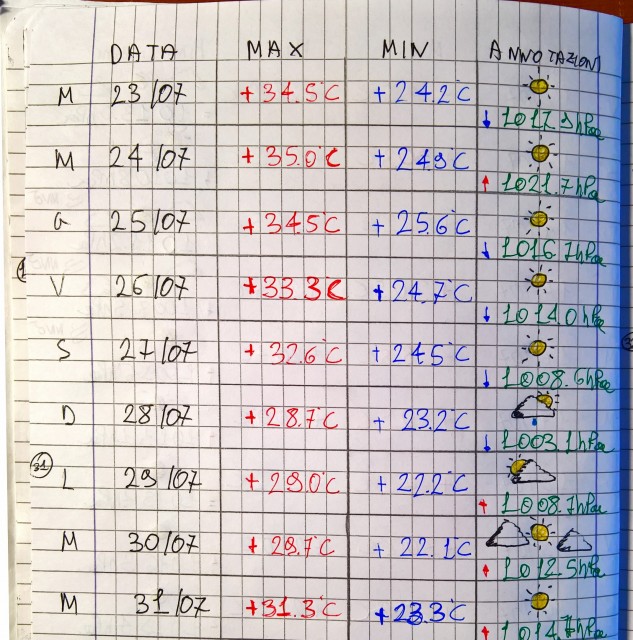 DATA MAX MIN ANNOTAZIONI
M 23/07 +34.5°C +24.2°C ↓ 1017.9hPa
M 24/07 +35.0°C +24.9°C ↑ 1021.7hPa
G 25/07 +34.5°C +25.6°C ↓ 1016.7hPa
V 26/07 +33.3°C +24.7°C ↓ 1014.0hPa
S 27/07 +32.6°C +24.5°C ↓ 1008.6hPa
D 28/07 +28.7°C +23.2°C ↓ 1003.1hPa
31 L 29/07 +29.0°C +22.2°C ↑ 1008.7hPa
M 30/07 +29.7°C +22.1°C ↑ 1012.5hPa
M 31/07 +31.3°C +23.3°C ↑